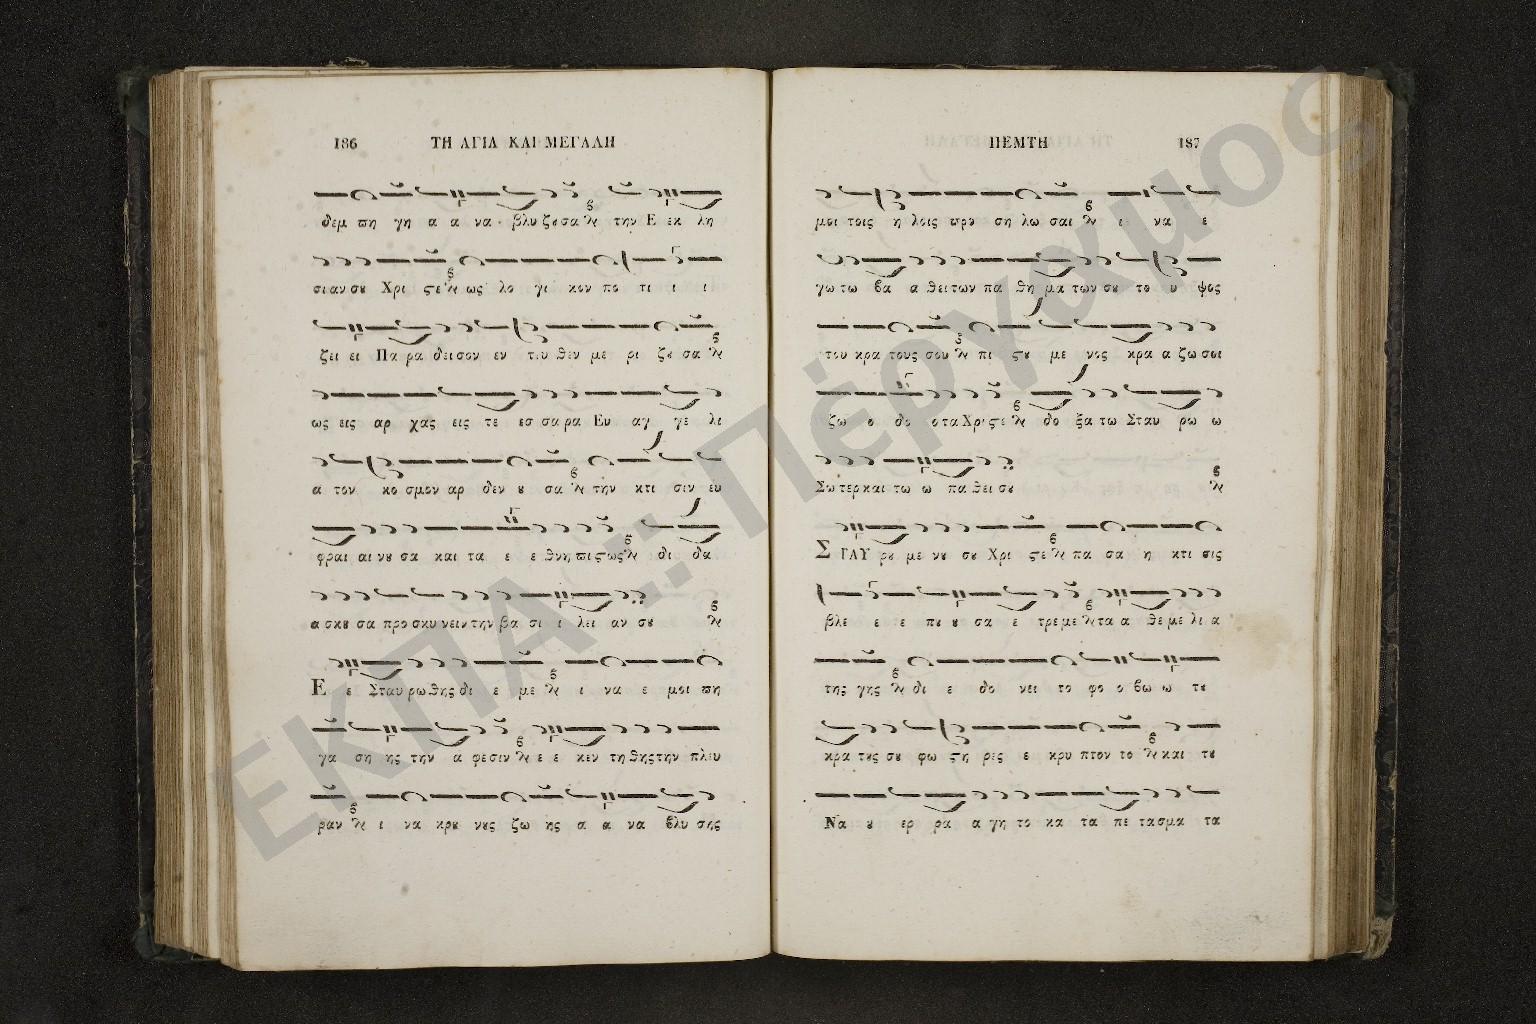 186 ΤΗ ΑΓΙΑ ΚΑΙ ΜΕΓΑΛΗ
δεμ πη γη α α να βλυ ζȣ σα την Ε εκ λη
σι αν σȣ Χρι ϛε ως λο γι κον πο τι ι ι
ζει ει Πα ρα δεισον εν τευ θεν με ρι ζȣ σα
ως εις αρ χας εις τε εσ σα ρα Ευ αγ γε λι
α τον κο σμον αρ δεν ȣ σα την κτι σιν ευ
φραι αι νȣ σα και τα ε ε θνη πι ϛως δι δα
α σκȣ σα προ σκυ νειν την βα σι ι λει αν σȣ
Ε ε Σταυ ρω θης δι ε με ι να ε μοι πη
γα ση ης την α φεσιν ε ε κεν τη θης την πλευ
ραν ι να κρȣ νȣς ζω ης α α να βλυ σης
ΠΕΜΤΗ 187
μοι τοις η λοις προ ση λω σαι ι να ε
γω τω βα α θει των πα θη μα των σȣ το υ ψος
του κρα τους σου πι ϛȣ με νος κρα α ζω σοι
ζω ο δο οτα Χρι ϛε δο ξα τω Σταυ ρω ω
Σω τερ και τω ω πα θει σȣ
ΣΤΑΥ ρȣ με νȣ σȣ Χρι ϛε πα σα η κτι σις
βλε ε ε πȣ ȣ σα ε τρε με τα α θε με λι α
της γης δι ε δο νει το φο ο βω ω τȣ
κρα τȣς σȣ φω ϛη ρες ε κρυ πτον το και τȣ
Να ȣ ερ ρα α γη το κα τα πε τασμα τα
ΕΚΠΑ :: Πέργαμος